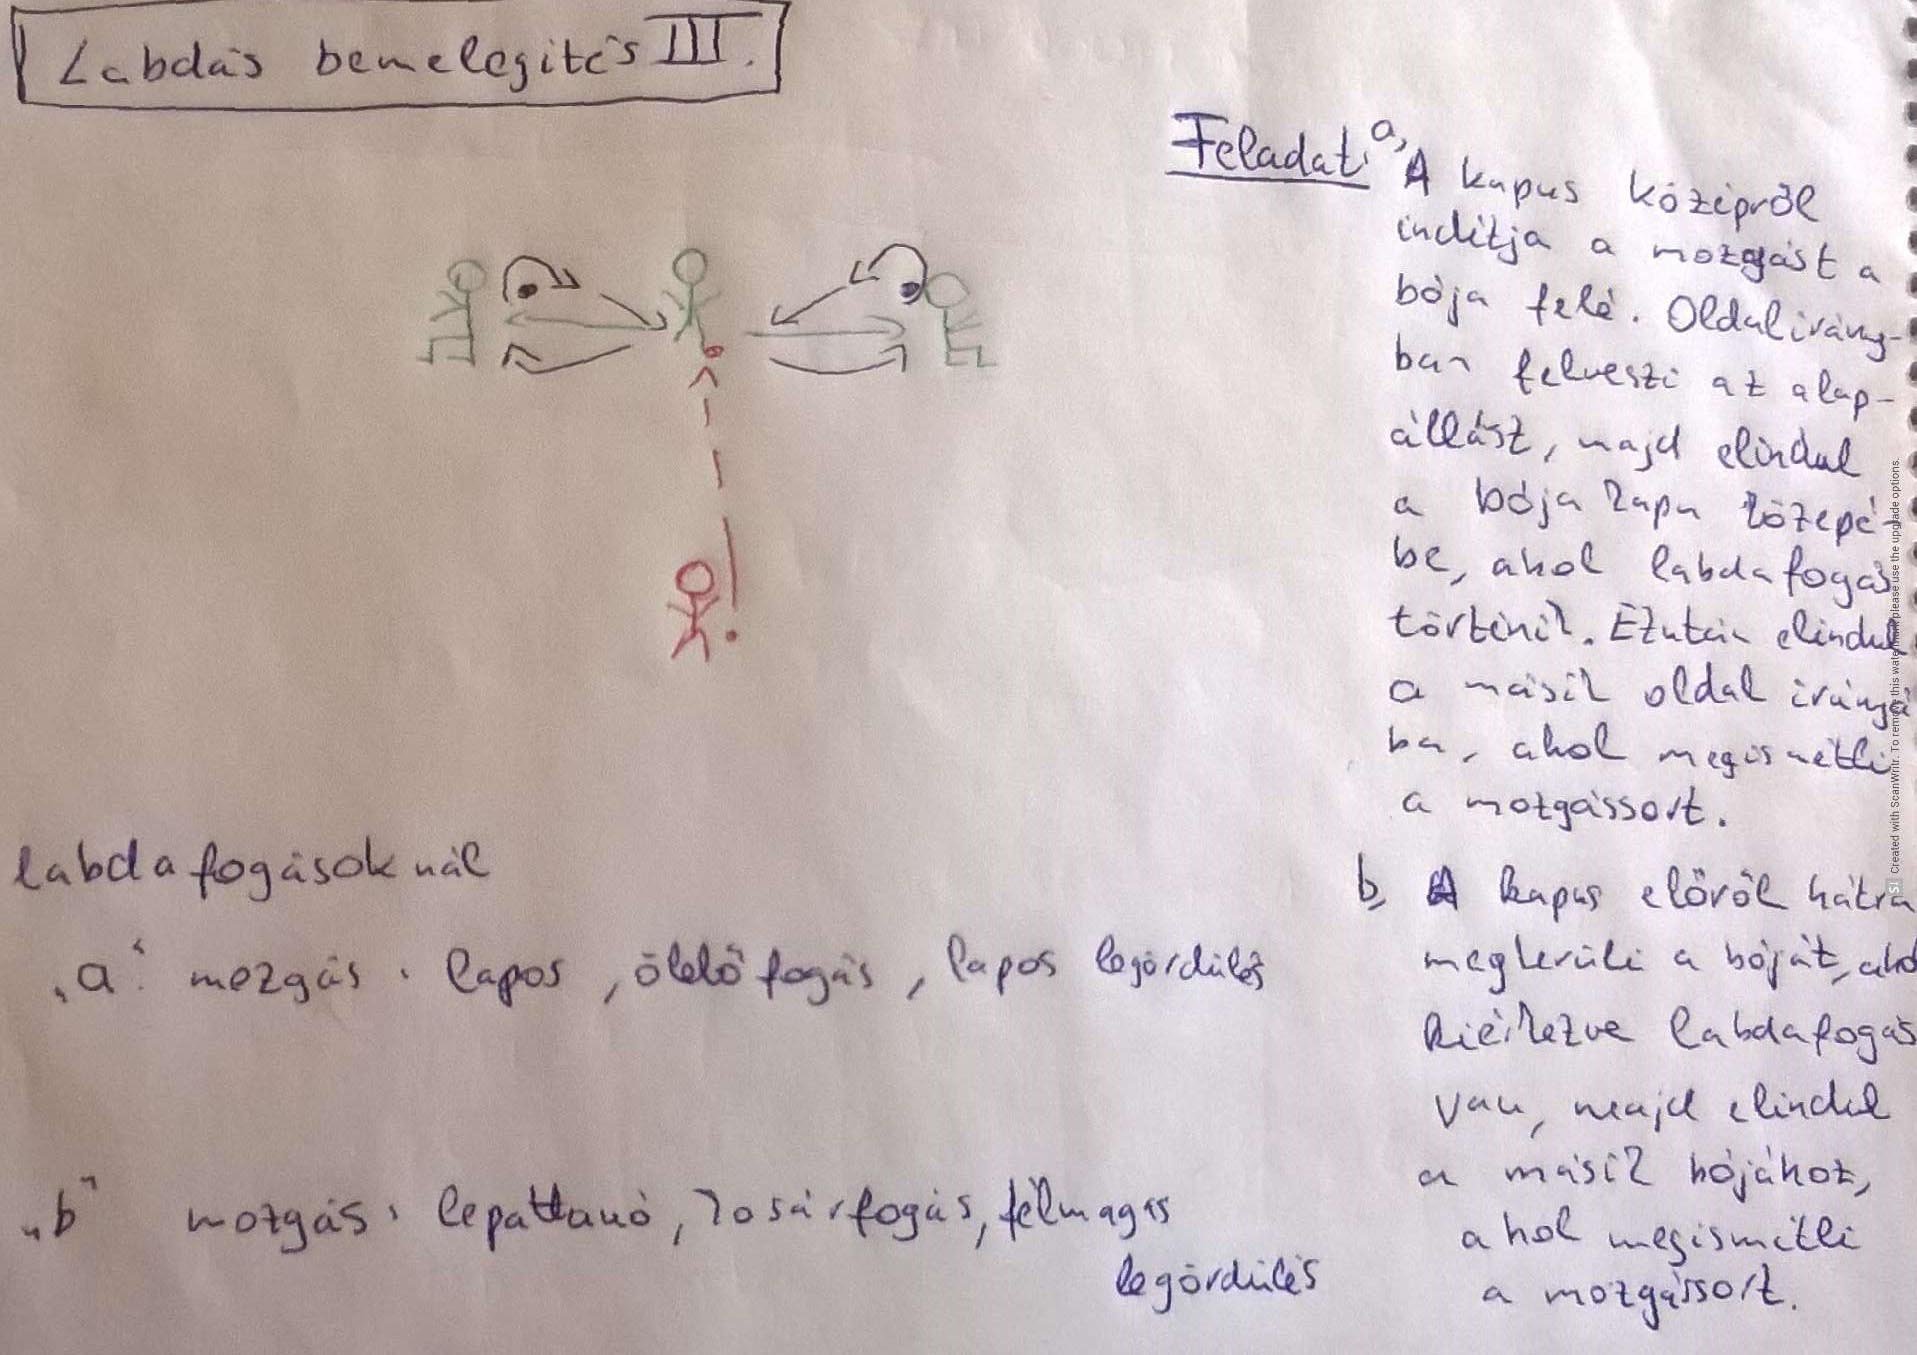 Labdás bemelegítés III.
Feladat: a, A kapus középről
indítja a mozgást a
bója felé. Oldalirány-
ban felveszi az alap-
állást, majd elindul
a bója kapu közepé-
be, ahol labdafogás
történik. Ezután elindul
a másik oldal irányá
ba, ahol megismétli
a mozgássort.
b, A kapus előről hátra
megkerüli a bóját, ahol
kiérkezve labdafogás
van, majd elindul
a másik bójához,
ahol megismétli
a mozgássort.
labdafogásoknál
„a" mozgás: lapos, ölelő fogás, lapos legördülés
„b" mozgás: lepattanó, kosárfogás, félmagas
legördülés
Created with ScanWritr. To remove this watermark please use the upgrade options.